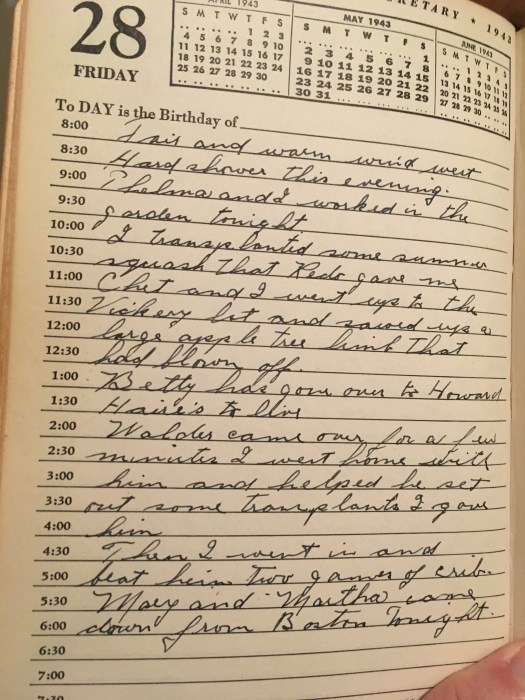 28
FRIDAY
APRIL 1943
S M T W T F S
.. .. .. .. 1 2 3
4 5 6 7 8 9 10
11 12 13 14 15 16 17
18 19 20 21 22 23 24
25 26 27 28 29 30
MAY 1943
S M T W T F S
.. .. .. .. .. .. 1
2 3 4 5 6 7 8
9 10 11 12 13 14 15
16 17 18 19 20 21 22
23 24 25 26 27 28 29
30 31 .. .. .. .. ..
CRETARY ★ 1943
JUNE 1943
S M T W T F S
.. .. 1 2 3 4 5
6 7 8 9 10 11 12
13 14 15 16 17 18 19
20 21 22 23 24 25 26
27 28 29 30 .. .. ..
To DAY is the Birthday of
8:00 Fair and warm wind west
8:30 Hard shower this evening.
9:00 Thelma and I worked in the
9:30 garden tonight
10:00 I transplanted some summer
10:30 squash that Redo gave me
11:00 Chet and I went up to the
11:30 Vickery lot and sawed up a
12:00 large apple tree limb that
12:30 had blown off.
1:00 Betty has gone over to Howard
1:30 Haire's to live
2:00 Walder came over for a few
2:30 minutes I went home with
3:00 him and helped he set
3:30 out some transplants I gave
4:00 him
4:30 Then I went in and
5:00 beat him two games of crib.
5:30 Mary and Martha came
6:00 down from Boston Tonight.
6:30
7:00
7:30